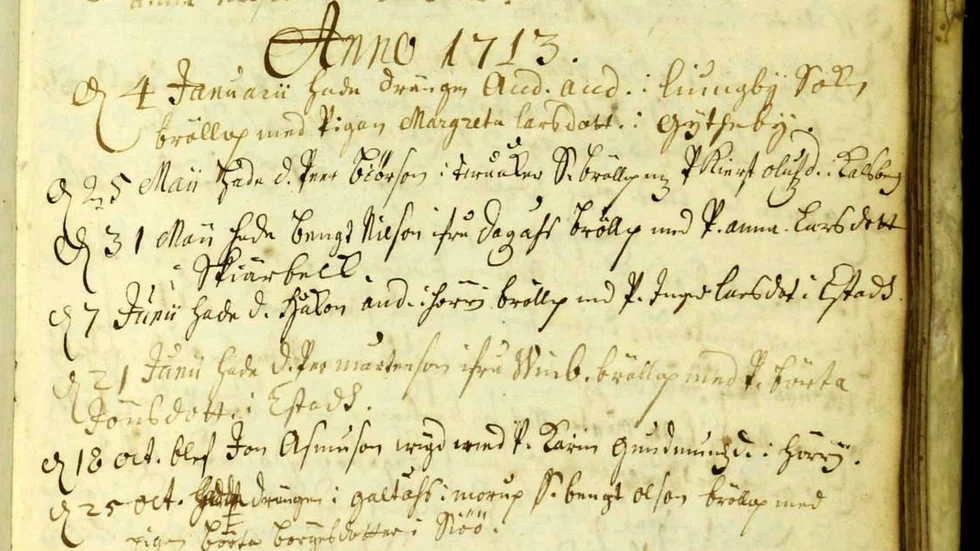 Anno 1713.
D 4 Januarii hade drängen And. And. i Liungby Sokn
bröllop med Pigan Margreta Larsdott. i Gytheby.
D 25 Maii hade d. Peer Biörson i S. bröllop m P Kierst Olufzd. i
D 31 Maii hade Bengt Nilson ifrå Dagås bröllp med P. Anna Larsdott
i Skiärbell.
D 7 Junii hade d. Håkon And. i Horri bröllp md P. Inge Larsdot i Estads
D 21 Junii hade d. Per Mårtenson ifrå Winb. bröllop med P. Börta
Jönsdott. i Estads.
D 18 Oct. blef Jon Asmuson wigd med P. Karin Gundmundzd. i Horri.
D 25 Oct. drängen i Galtåhs i Morup S. Bengt Olson bröllop med
pigan Börta Börgesdotter i Siöö.